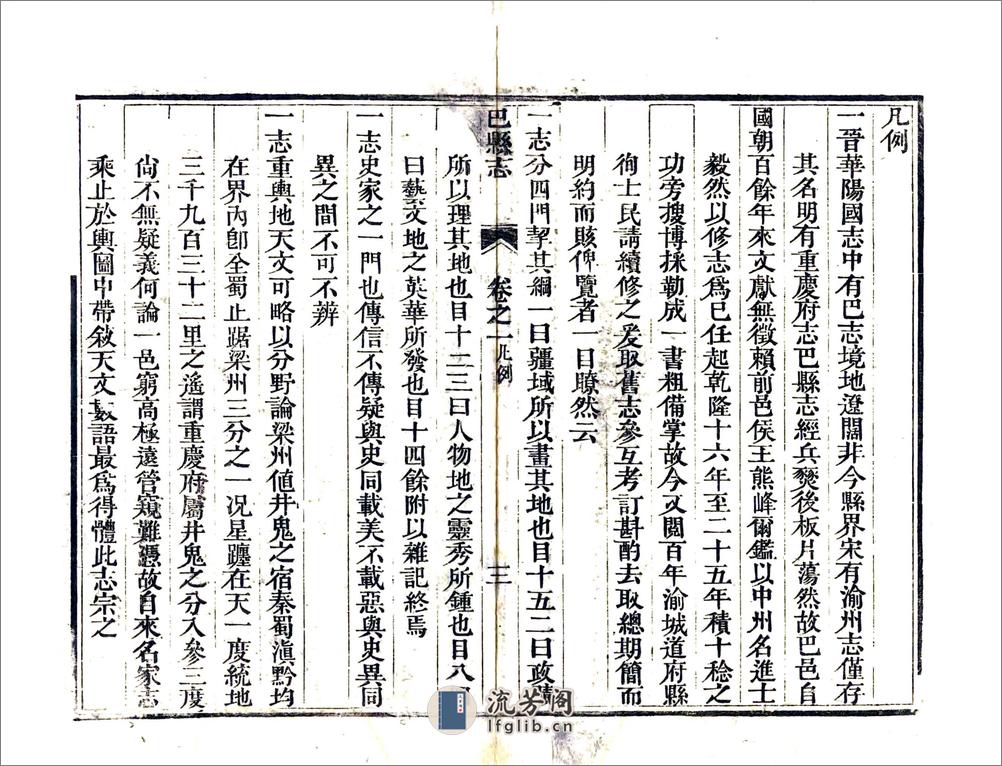 凡例
一晉華陽國志中有巴志境地遼闊非今縣界宋有渝州志僅存
其名明有重慶府志巴縣志經兵燹後板片蕩然故巴邑自
國朝百餘年來文獻無徵賴前邑侯王熊峰爾鑑以中州名進士
毅然以修志爲己任起乾隆十六年至二十五年積十稔之
功旁搜博採勒成一書粗備掌故今又閲百年渝城道府縣
徇士民請續修之爰取舊志參互考訂斟酌去取總期簡而
明約而賅俾覽者一目瞭然云
一志分四門挈其綱一曰疆域所以畫其地也目十五二曰政績
巴縣志
卷之一凡例
三
所以理其地也目十二三曰人物地之靈秀所鍾也目八
曰藝文地之英華所發也目十四餘附以雜記終焉
一志史家之一門也傳信不傳疑與史同載美不載惡與史異同
異之間不可不辨
一志重輿地天文可略以分野論梁州值井鬼之宿秦蜀滇黔均
在界內卽全蜀止踞梁州三分之一况星躔在天一度統地
三千九百三十二里之遙謂重慶府屬井鬼之分入參三度
尙不無疑義何論一邑窮高極遠管窺難憑故自來名家志
乘止於輿圖中帶敘天文數語最爲得體此志宗之
流芳閣
lfglib.cn